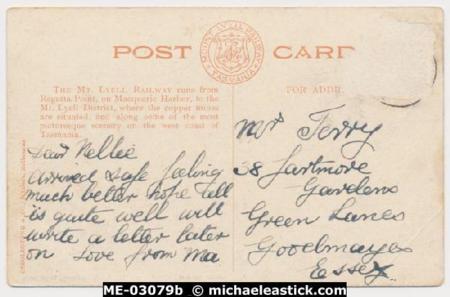 POST CARD
MOUNT LYELL RAILWAY
TASMANIA
THE MT. LYELL RAILWAY runs from
Regatta Point, on Macquarie Harbor, to the
Mt. Lyell District, where the copper mines
are situated, and along some of the most
picturesque scenery on the west coast of
Tasmania.
FOR ADDR
Dear Nellie
arrived safe feeling
much better hope all
is quite well will
write a letter later
on love from Ma
Mrs Terry
38
Gardens
Green Lanes
Goodmayes
Essex
ME-03079b © michaeleastick.com